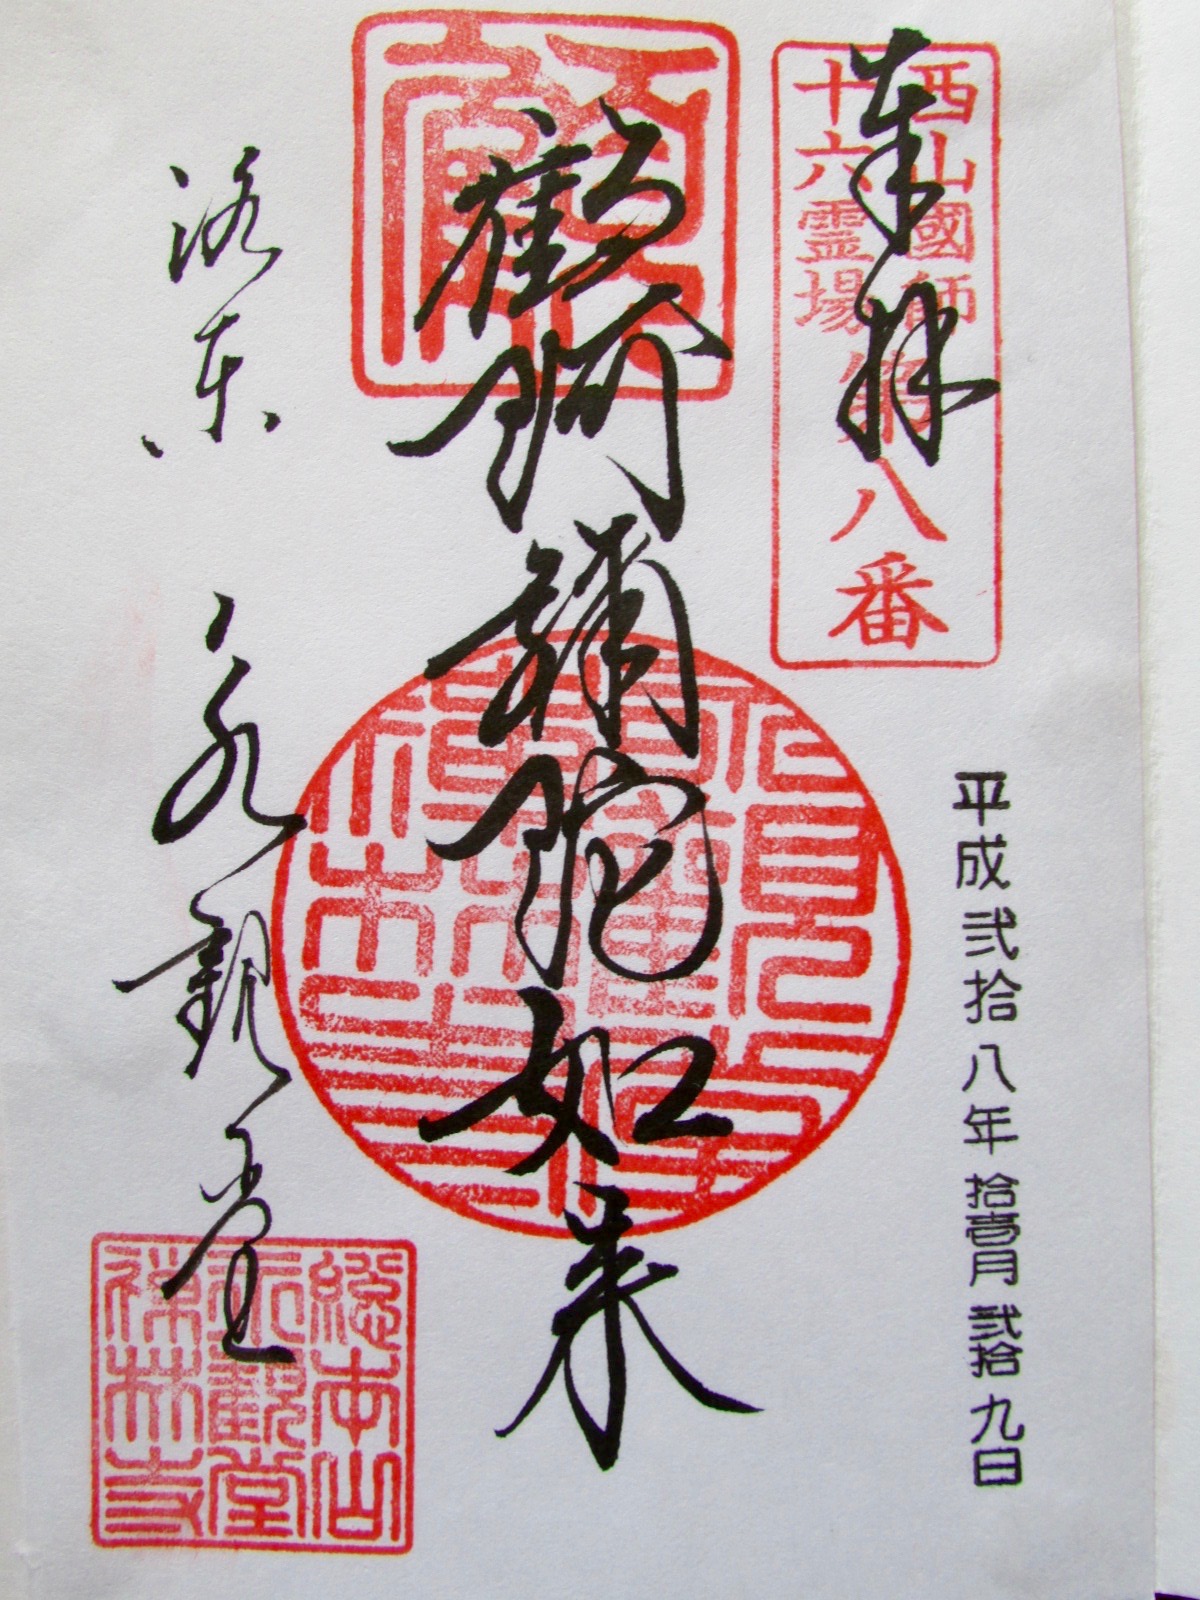 奉拝
西山國師
十六霊場
第八番
平成弐拾八年拾壱月弐拾九日
顧阿彌陀如来
洛東 永観堂
總本山
永觀堂
禪林寺